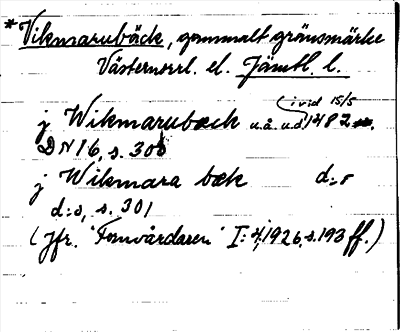 *Vikmarubäck, gammalt gränsmärke
Västernorrl. el. Jämtl. l.
(ivid 15/5
j Wikmarubæck u.å. 1482.
DN 16, s. 300
j Wikmara bæk d:o
d:o, s. 301
(Jfr. "Fornvårdaren" I: 4, 1926, s. 193 ff.)